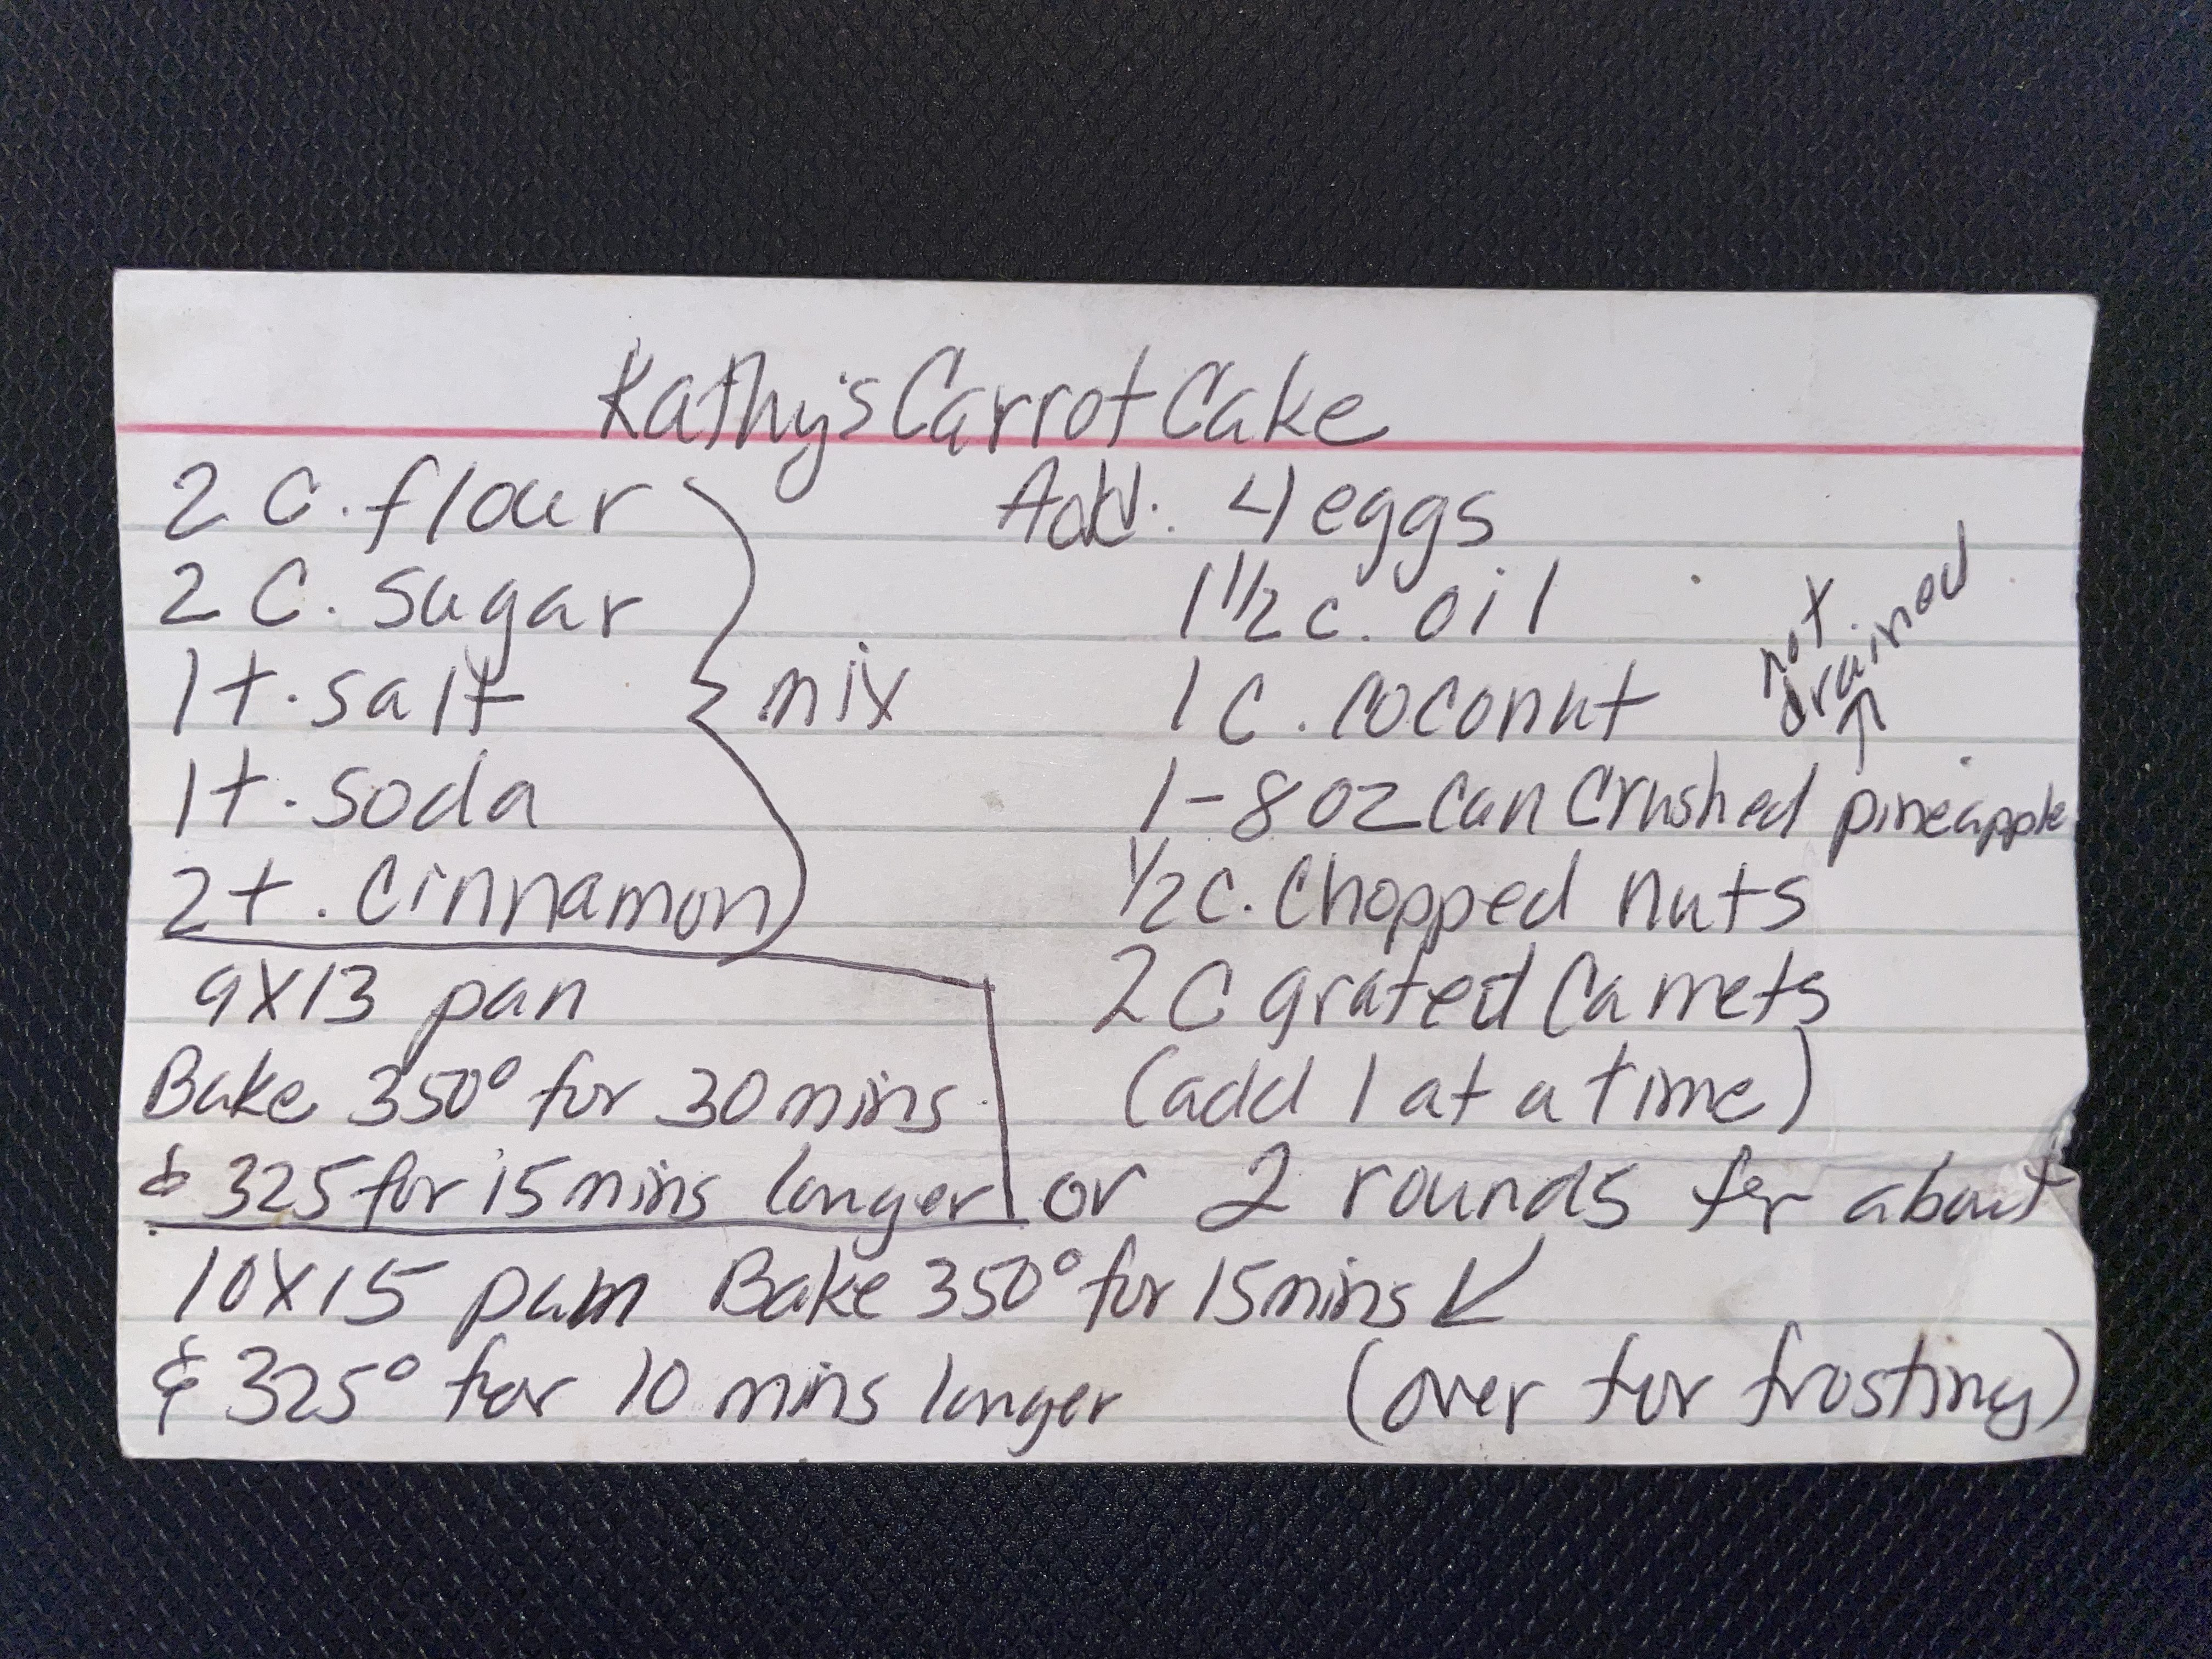 Kathy's Carrot Cake
2 C. flour
2 C. sugar
1 t. salt
1 t. soda
2 t. cinnamon
mix
Add: 4 eggs
1 1/2 c. oil
1 c. coconut
not
drained
1-8 oz can crushed pineapple
1/2 c. chopped nuts
2 C grated carrets
(add 1 at a time)
9X13 pan
Bake 350° for 30 mins.
& 325 for 15 mins longer
or 2 rounds for about
10X15 pan Bake 350° for 15 mins ↙
& 325° for 10 mins longer
(over for frosting)